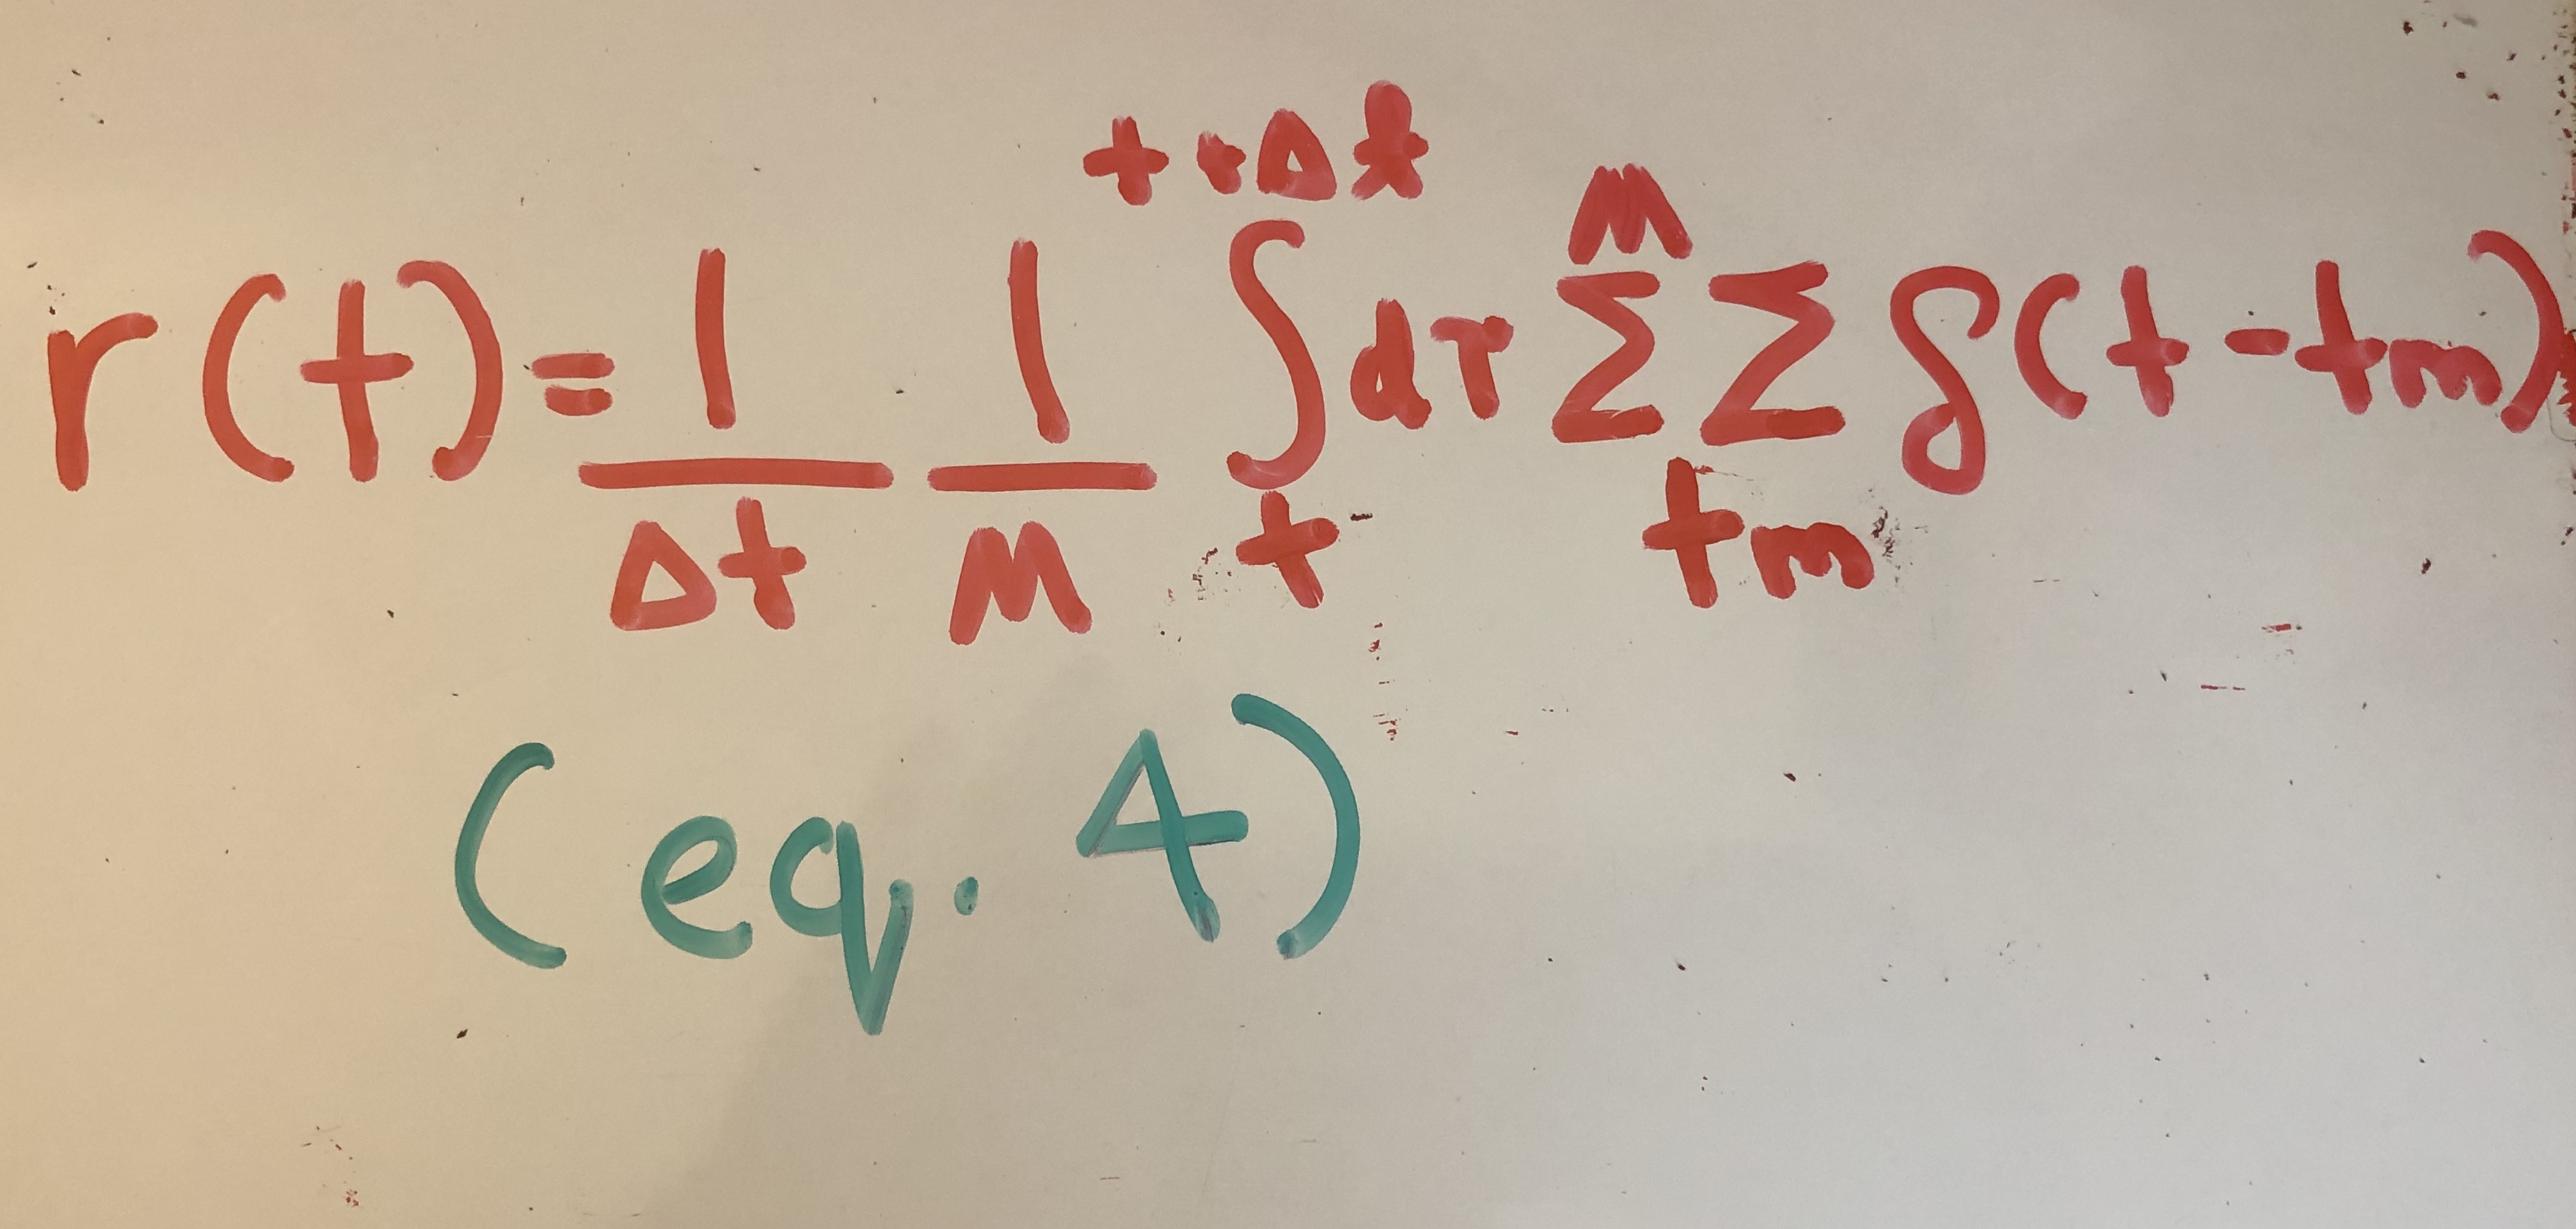 r(t) = \frac{1}{\Delta t} \frac{1}{M} \int_{t}^{t+\Delta t} d\tau \sum^{M} \sum_{tm} \delta(t - tm)
(eq. 4)